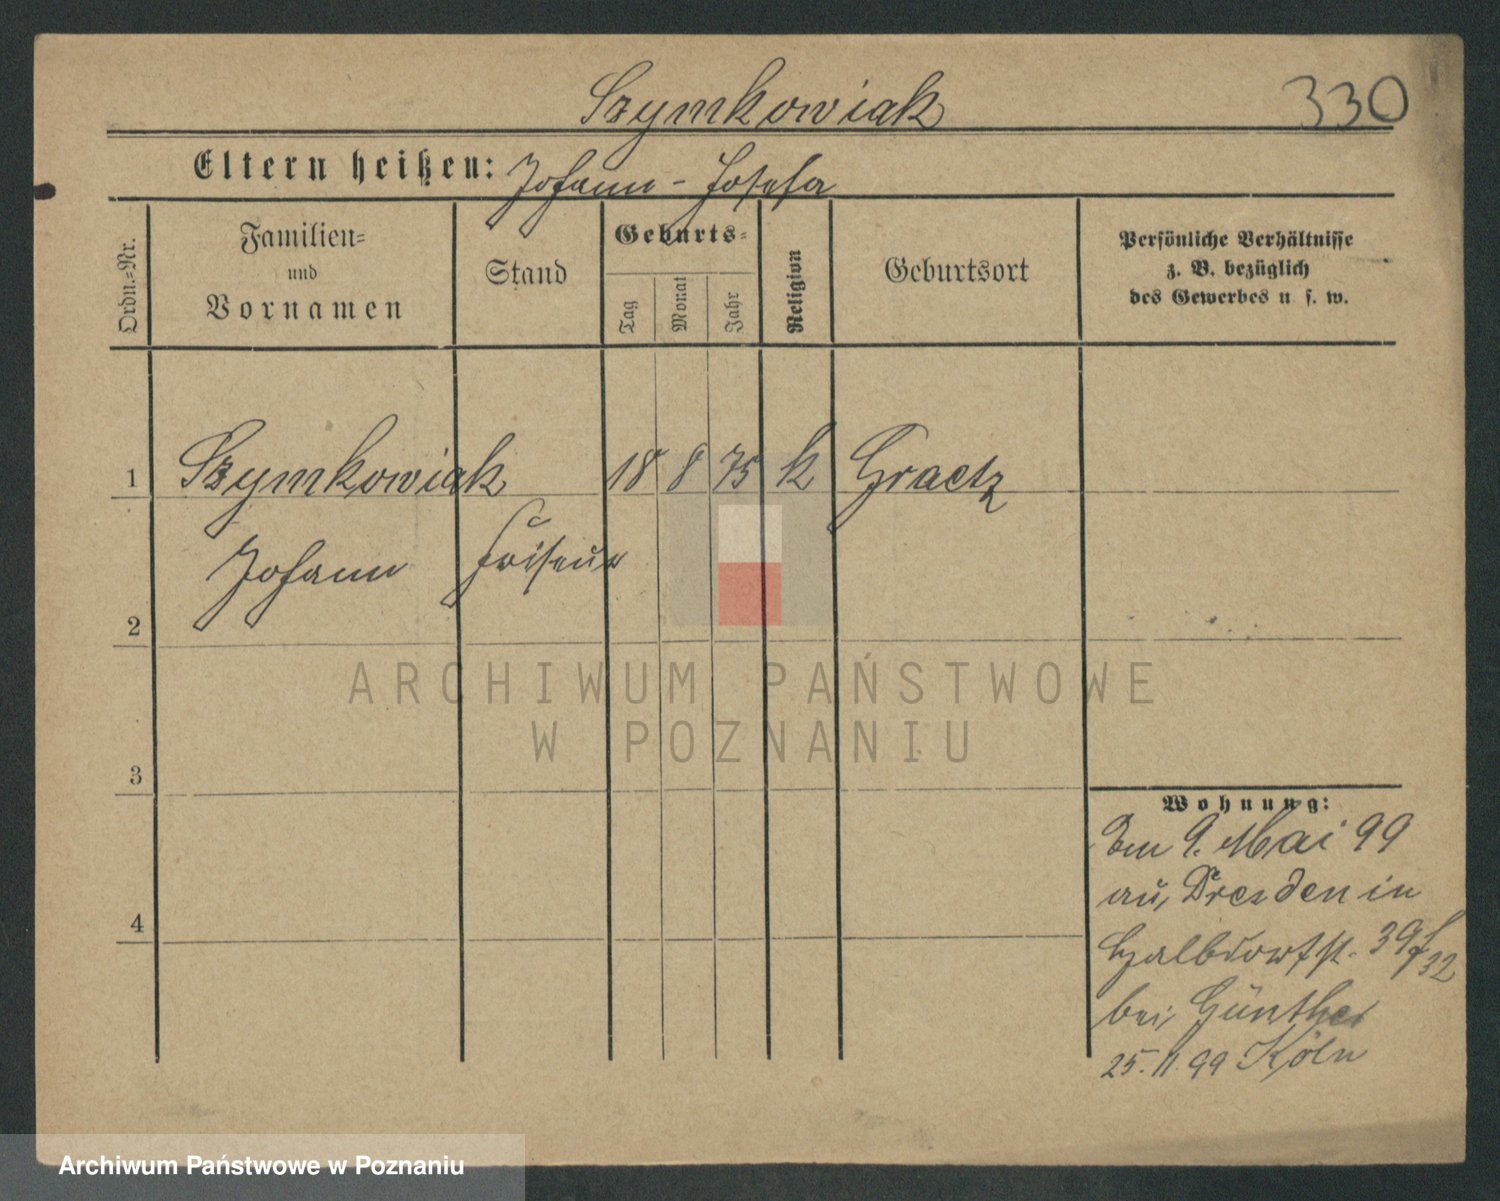 Szymkowiak 330
Eltern heißen: Johann - Josefa
Ordn.=Nr.
Familien=
und
Vornamen
Stand
Geburts=
Tag
Monat
Jahr
Religion
Geburtsort
Persönliche Verhältnisse
z. B. bezüglich
des Gewerbes u. s. w.
1 Szymkowiak 18 8 75 k Graetz
Johann Friseur
2
3
4
Wohnung:
9. Mai 99
aus Dresden in
Halbdorfst. 39
bei Günther
25. 11. 99 Köln
ARCHIWUM PAŃSTWOWE
W POZNANIU
Archiwum Państwowe w Poznaniu